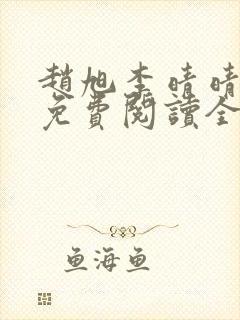 趙旭李晴晴
免費閱讀全
鱼海鱼